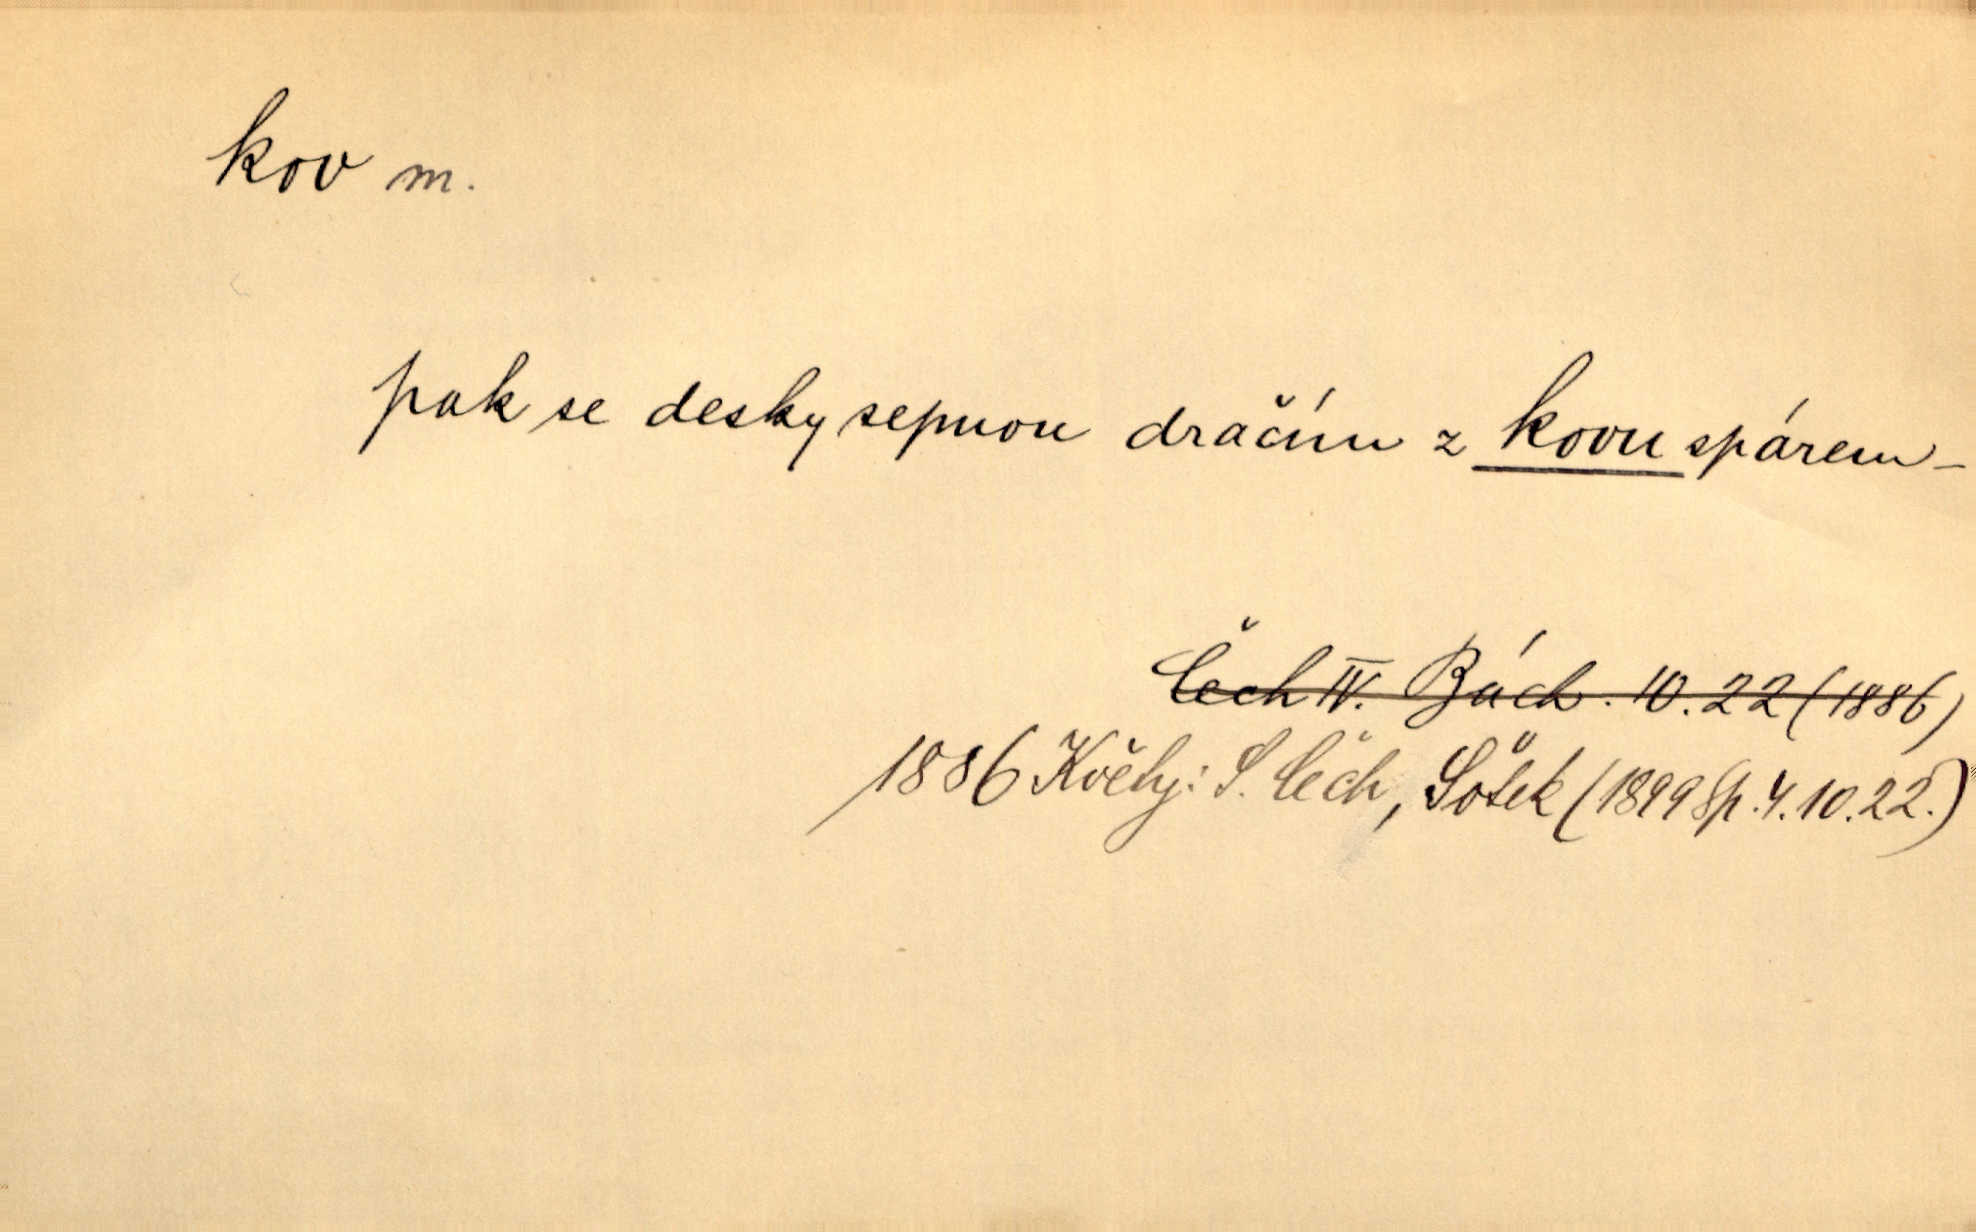 kov m.
pak se desky sepnou dračím z kovu spárem –
Čech IV. Bách. 10. 22 (1886)
1886 Květy: S. Čech, (1899 Sp. 4. 10. 22.)